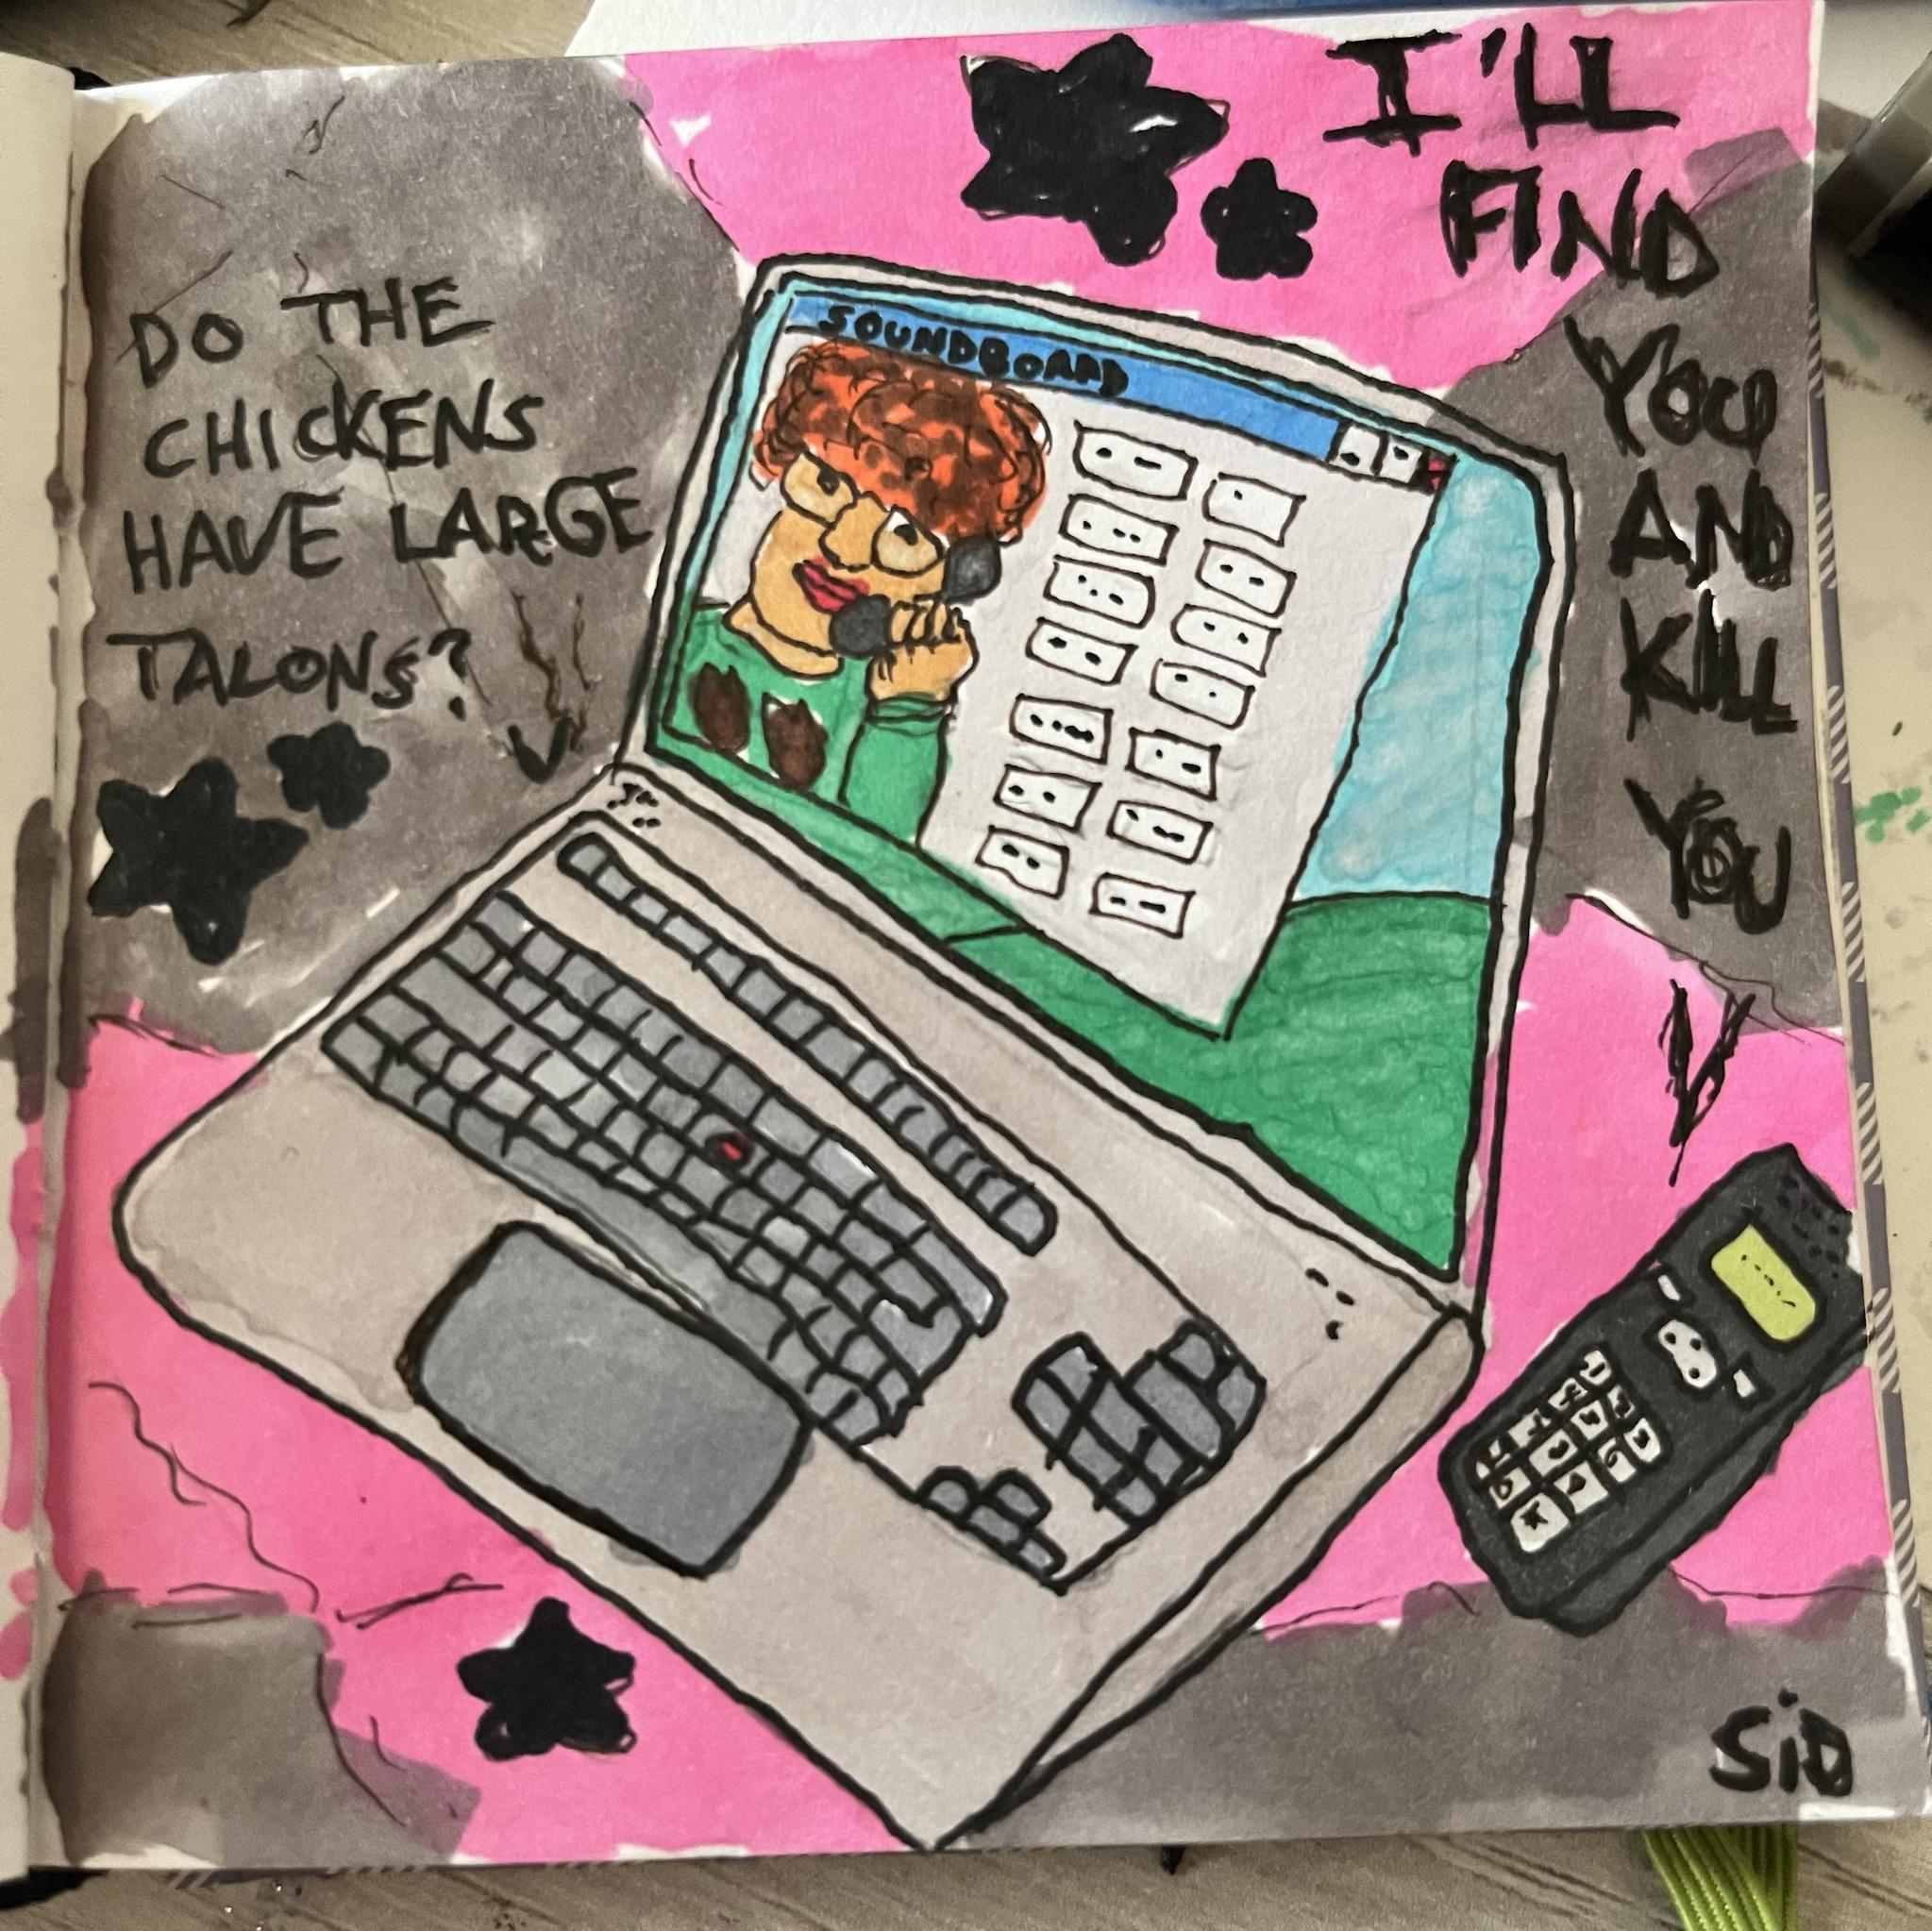 DO THE
CHICKENS
HAVE LARGE
TALONS?
SOUNDBOARD
I'LL
FIND
YOU
AND
KILL
YOU
SiD